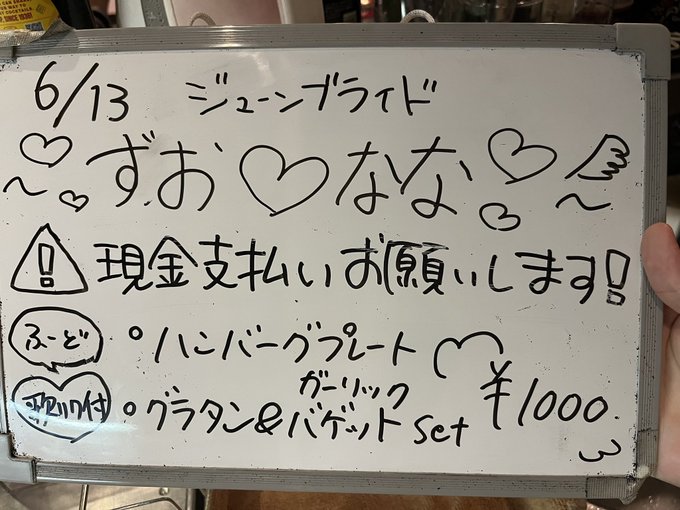 6/13 ジューンブライド
〜♡ずお♡なな♡〜
現金支払いお願いします!
ふーど
ハンバーグプレート
歌リク付
グラタン&ガーリックバゲットset
¥1000
SINCE 1930!